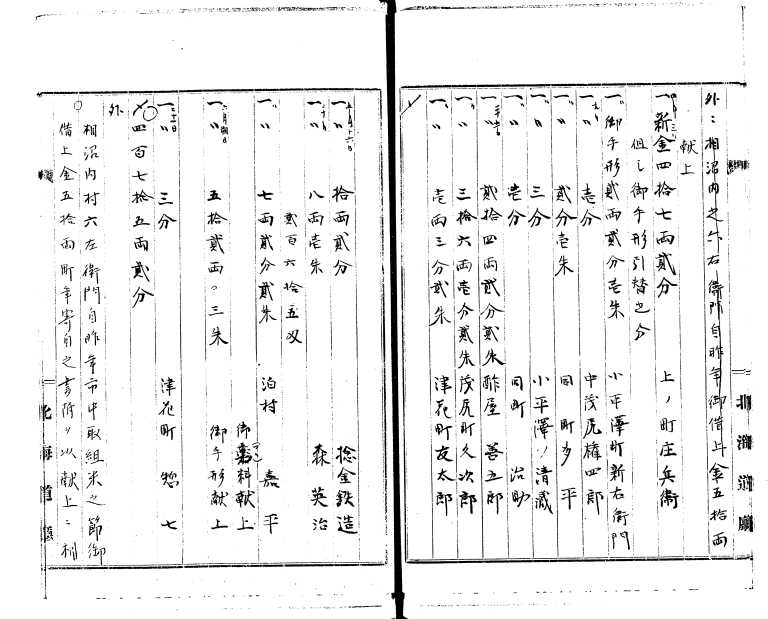 外ニ相沼内之六右衛門自昨年御借上金五拾両
献上
一、新金四拾七両貳分 上ノ町庄兵衛
但し御手形引替之分
一、御手形貳両貳分壱朱 小平澤町新右衛門
一、〃 壱分 中茂尻権四郎
一、〃 貳分壱朱 同町多平
一、〃 三分 小平澤ノ清藏
一、〃 壱分 同町治助
一、〃 貳拾四両貳分貳朱 酢屋善五郎
一、〃 三拾六両壱分貳朱 茂尻町久次郎
一、〃 壱両三分貳朱 津花町友太郎
北海道廳
一、〃 拾両貳分 捻金鉄造
一、〃 八両壱朱 森英治
貳百六拾五双
一、〃 七両貳分貳朱 泊村嘉平
御料献上
一、〃 五拾貳両〇三朱 御手形献上
一、〃 三分 津花町惣七
〆四百七拾五両貳分
外
相沼内村六左衛門自昨年市中取組米之節御
借上金五拾両町年寄自之書附ヲ以献上ニ相
北海道廳